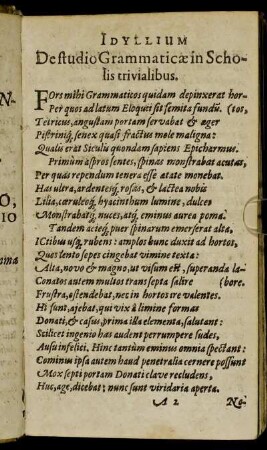 IDYLLIUM
De studio Grammaticæ in Scho-
lis trivialibus.
FOrs mihi Grammaticos quidam depinxerat hor-
Per quos ad latum Eloquii sit semita fundū. (tos,
Tetricus, angustam portam servabat & æger
Pistriníq, senex quasi fractus mole maligna:
Qualis erat Siculis quondam sapiens Epicharmus.
Primùm aspros sentes, spinas monstrabat acutas,
Per quas rependum tenera esse ætate monebat.
Has ultra, ardentesq́; rosas, & lactea nobis
Lilia, cæruleoq́; hyacinthum lumine, dulces
Monstrabatq́; nuces, atq́; eminus aurea poma.
Tandem acteq́; puer spinarum emerserat alta,
ICtibus usq; rubens: amplos hunc duxit ad hortos,
Quos lento sepes cingebat vimine texta:
Alta, novo & magno, ut visum est, superanda la-
Conatos autem multos trans septa salire (bore.
Frustra, ostendebat, nec in hortos ire valentes.
Hi sunt, ajebat, qui vix à limine formas
Donati, & casus, prima illa elementa, salutant:
Scilicet ingenio has audent perrumpere sudes,
Ausu infelici. Hinc tantùm eminus omnia spectant:
Cominus ipsa autem haud penetralia cernere possunt
Mox septi portam Donati clave recludens,
Huc, age, dicebat; nunc sunt viridaria aperta.
A 2 No-
N-
O,
IO